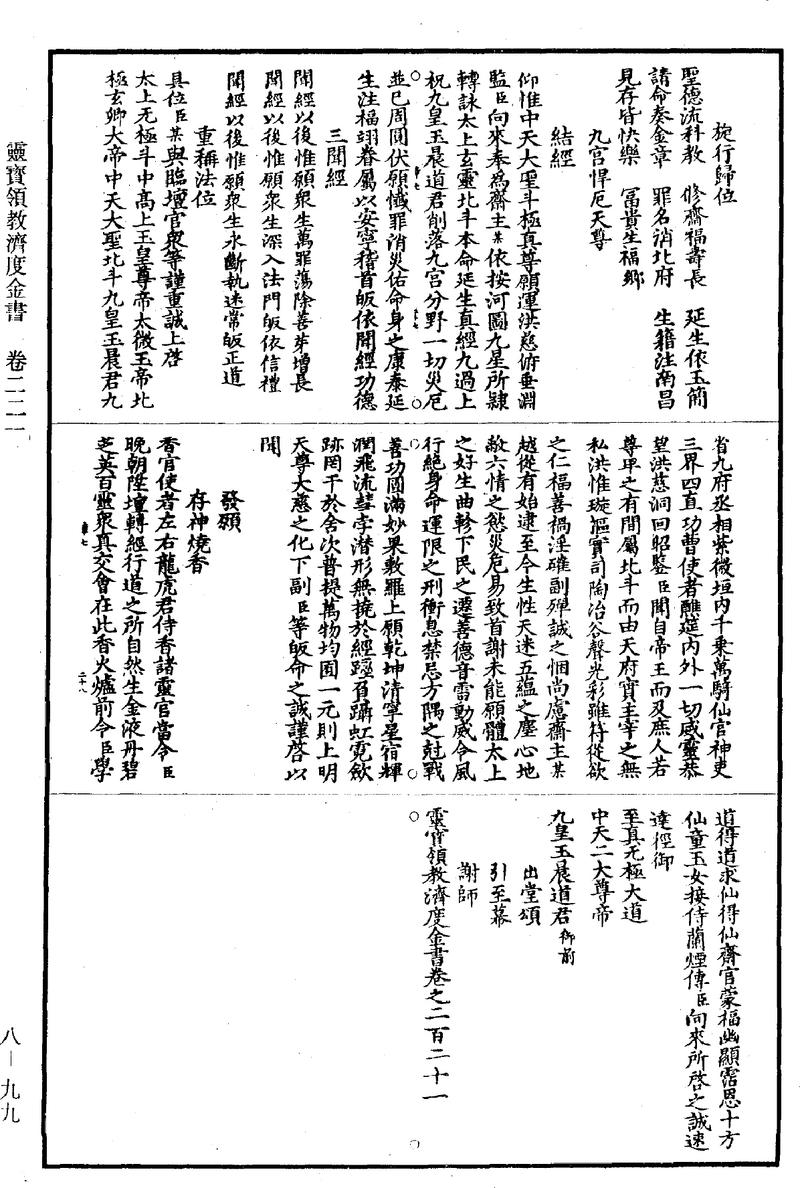 靈寶領教濟度金書　卷二二一
旋行歸位
聖德流科教　修齋福壽長　延生依玉簡
請命奏金章　罪名消北府　生籍注南昌
見存皆快樂　冨貴生福鄉
九宮悍厄天尊
結經
仰惟中天大聖斗極真尊願運洪慈俯垂淵
監臣向來奉為齋主某依按河圖九星所隷
轉詠太上玄靈北斗本命延生真經九過上
祝九皇玉晨道君削落九宮分野一切災厄
並已周圓伏願懺罪消災佑命身之康泰延
生注福翊眷屬以安寧稽首皈依開經功德
三聞經
聞經以後惟願衆生萬罪蕩除善芽增長
聞經以後惟願衆生深入法門皈依信禮
聞經以後惟願衆生永斷執迷常皈正道
重稱法位
具位臣某與臨壇官衆等謹重誠上啓
太上无極斗中高上玉皇尊帝太微玉帝北
極玄卿大帝中天大聖北斗九皇玉晨君九
省九府丞相紫微垣內千乘萬騎仙官神吏
三界四直功曹使者醮筵内外一切威靈恭
望洪慈洞回昭鑒臣聞自帝王而及庶人若
尊卑之有間屬北斗而由天府實主宰之無
私洪惟璇樞實司陶冶谷聲光彩雖符從欲
之仁福善禍淫確副殫誠之悃尚慮齋主某
越從有始逮至今生性天迷五蘊之塵心地
敵六情之慾災危易致首謝未能願體太上
之好生曲軫下民之遷善德音雷動威令風
行絕身命運限之刑衝息禁忌方隅之尅戰
善功圓滿妙果敷羅上願乾坤清寧星宿輝
潤飛流彗孛潛形無掩於經躔䝿躡虹霓斂
跡罔干於舍次普提萬物均囿一元則上明
天尊大慈之化下副臣等皈命之誠謹啓以
聞
發願
存神燒香
香官使者左右龍虎君侍香諸靈官當令臣
晚朝陞壇轉經行道之所自然生金液丹碧
芝英百靈衆真交會在此香火爐前令臣學
道得道求仙得仙齋官蒙福幽顯霑恩十方
仙童玉女接侍蘭煙傳臣向來所啓之誠速
達徑御
至真无極大道
中天二大尊帝
九皇玉晨道君御前
出堂頌
引至幕
謝師
靈寶領教濟度金書卷之二百二十一
八－九九